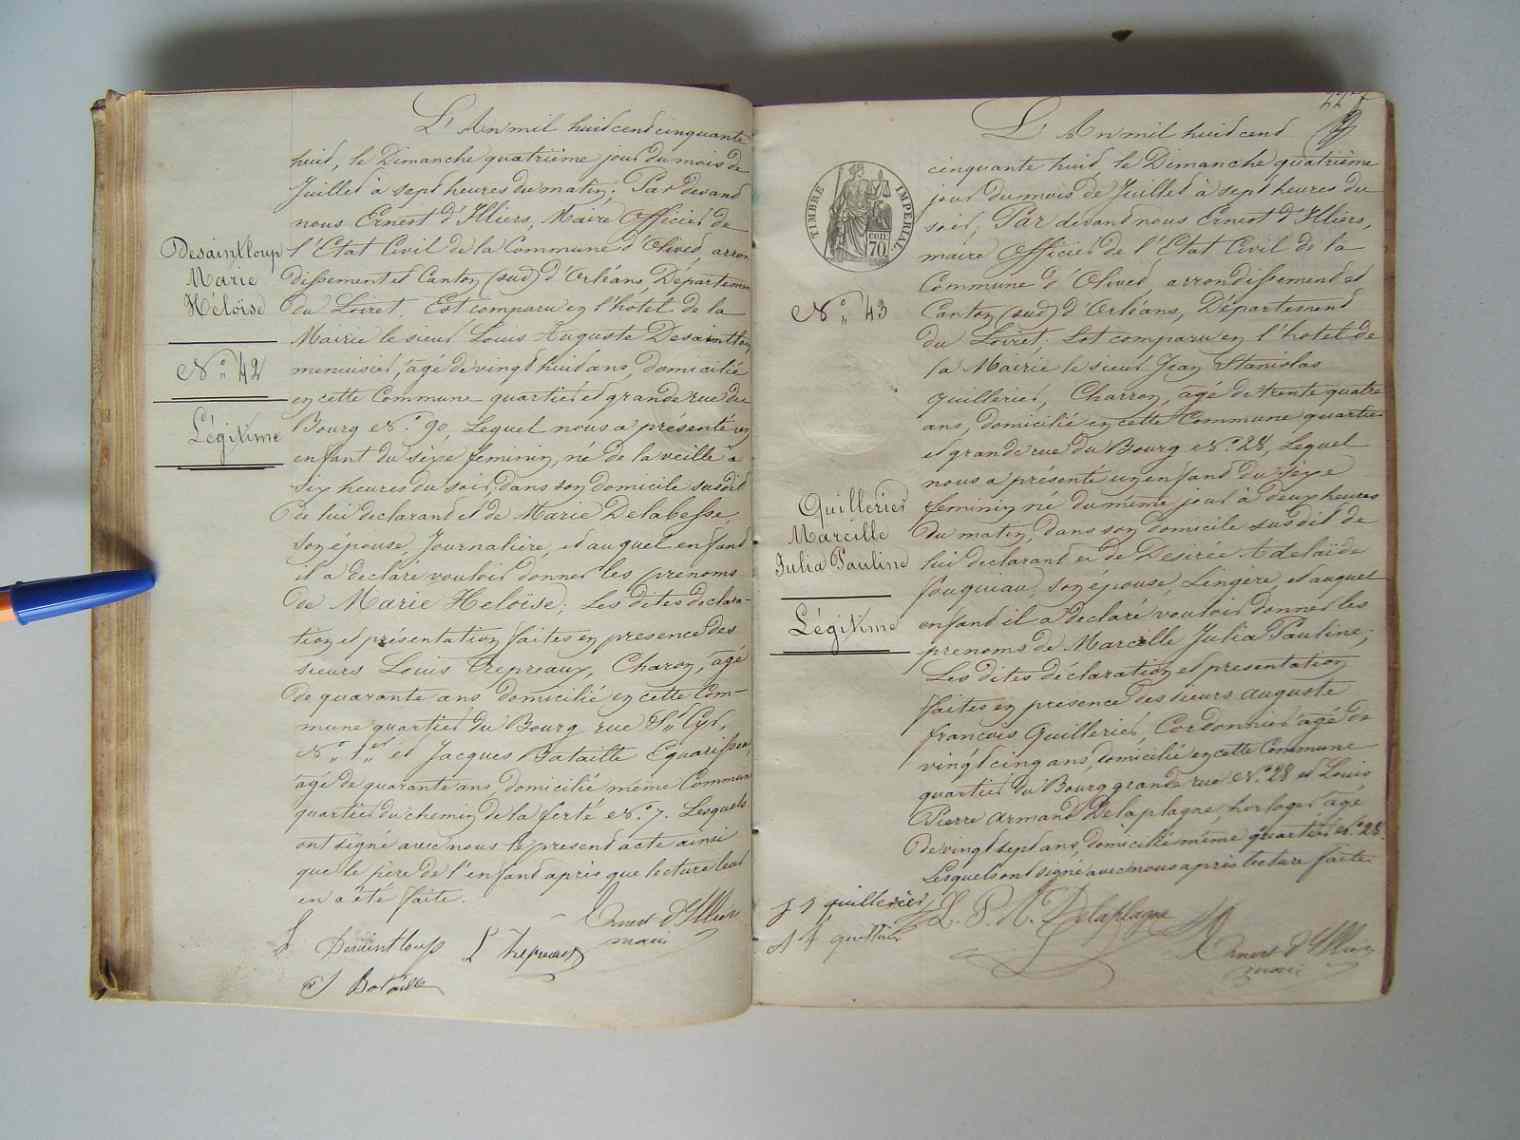 Desaintloup
Marie
Héloïse
N.° 42
Légitime
L'An mil huit cent cinquante
huit, le Dimanche quatrième jour du mois de
Juillet à sept heures du matin; Par devant
nous Ernest d'Illiers, Maire Officier de
l'Etat Civil de la Commune d'Olivet, arron
dissement et Canton (sud) d'Orléans, Départemen
du Loiret. Est comparu en l'hotel de la
Mairie le sieur Louis Auguste Desaintloup
menuisier, agé de vingt huit ans, domicilié
en cette Commune quartier et grande rue du
Bourg N.° 90, Lequel nous a présenté un
enfant du séxe feminin, né de la veille à
six heures du soir, dans son domicile susdit
de lui declarant et de Marie Delabesse,
son épouse, Journalière, et auquel enfant
il a declaré vouloir donner les prenoms
de Marie Heloïse; Les dites declara-
tion et présentation faites en presence des
sieurs Louis Trepreaux, Charon, agé
de quarante ans domicilié en cette Com-
mune quartier du Bourg rue St. Cyr,
N.° 1er et Jacques Bataille Equarisseur,
agé de quarante ans, domicilié même Commune
quartier du chemin de la ferté N.° 7. Lesquels
ont signé avec nous le present acte ainsi
que le père de l'enfant après que lecture leur
en a été faite.
Ernest d'Illiers
maire
L Desaintloup L Trepreaux
J Bataille
227
TIMBRE IMPERIAL
COD.
70
N.° 43
Quillerier
Marcille
Julia Pauline
Légitime
L'An mil huit cent
cinquante huit, le Dimanche quatrième
jour du mois de Juillet à sept heures du
soir, Par devant nous Ernest d'Illiers,
maire Officier de l'Etat Civil de la
Commune d'Olivet, arrondissement et
Canton (sud) d'Orléans, Département
du Loiret; Est comparu en l'hotel de
la Mairie le sieur Jean Stanislas
quillerier, Charron, agé de trente quatre
ans, domicilié en cette Commune quartier
et grande rue du Bourg N.° 28, Lequel
nous a présenté un enfant du séxe
feminin né du même jour à deux heures
du matin, dans son domicile susdit de
lui declarant et de Desirée Adelaïde
fouquiau, son épouse, Lingère, et auquel
enfant il a declaré vouloir donner les
prenoms de Marcelle Julia Pauline;
Les dites déclaration et presentation
faites en presence des sieurs auguste
françois Quillerier, Cordonnier agé de
vingt cinq ans, domicilié en cette Commune
quartier du Bourg grande rue N.° 28 et Louis
Pierre armand Delaplagne, horloger agé
de vingt sept ans, domicilié même quartier N.° 28
Lesquels ont signé avec nous après lecture faite.
J S quillerier L. P. A. Delaplagne
A f quillerier
Ernest d'Illiers
maire